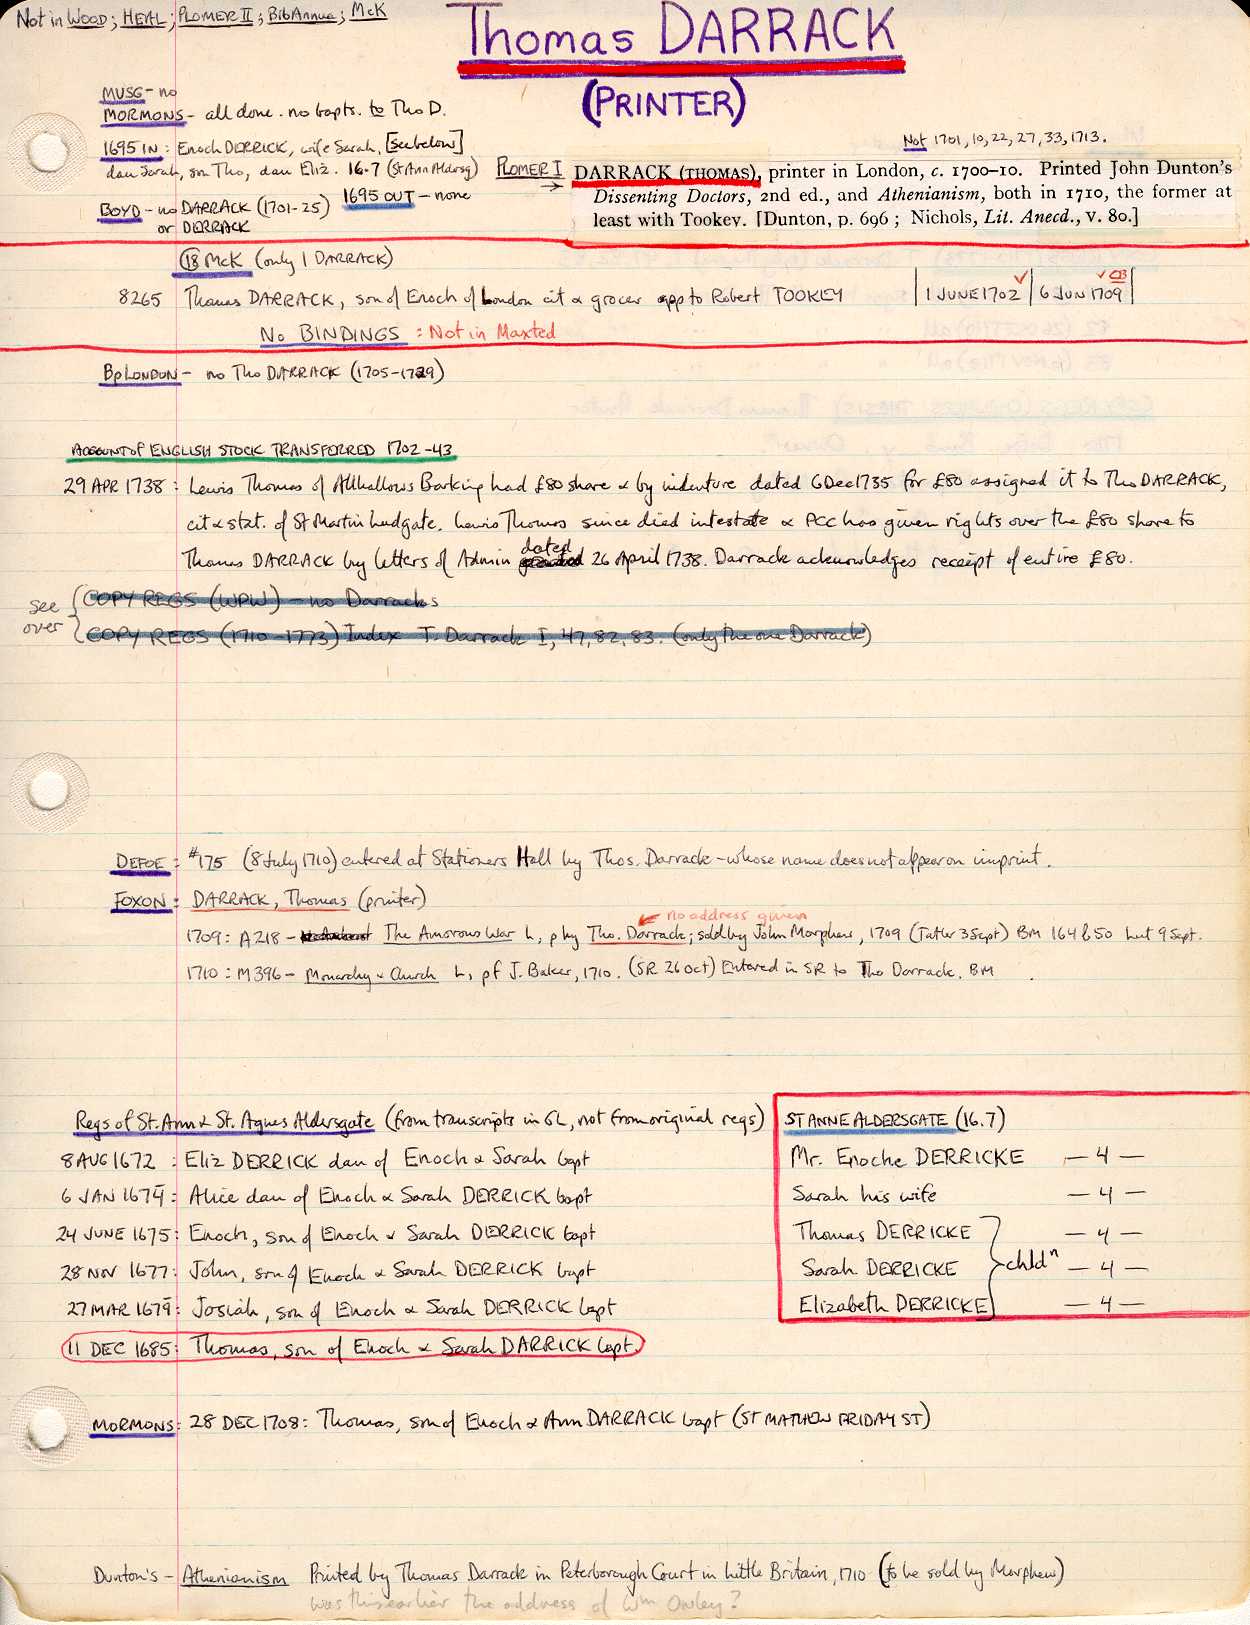 Not in WOOD; HEAL; PLOMER II; BibAnnua; McK
Thomas DARRACK
(PRINTER)
MUSG - no
MORMONS - all done. no bapts. to Tho D.
1695 IN: Enoch DERRICK, wife Sarah, [see below]
dau Sarah, son Tho, dau Eliz. 16.7 (St Ann Aldersg)
1695 OUT - none
BOYD - no DARRACK (1701-25)
or DERRACK
Not 1701, 10, 22, 27, 33, 1713.
PLOMER I →
DARRACK (THOMAS), printer in London, c. 1700-10. Printed John Dunton's
Dissenting Doctors, 2nd ed., and Athenianism, both in 1710, the former at
least with Tookey. [Dunton, p. 696; Nichols, Lit. Anecd., v. 80.]
18 McK (only 1 DARRACK)
8265 Thomas DARRACK, son of Enoch of London cit & grocer app to Robert TOOKEY | 1 JUNE 1702 ✓ | 6 JUN 1709 ✓ CB |
No BINDINGS : Not in Maxted
Bp LONDON - no Tho DARRACK (1705-1729)
ACCOUNT of ENGLISH STOCK TRANSFERRED 1702-43
29 APR 1738 : Lewis Thomas of Allhallows Barking had £80 share & by indenture dated 6 Dec 1735 for £80 assigned it to Tho DARRACK,
cit & stat. of St Martin Ludgate. Lewis Thomas since died intestate & PCC has given rights over the £80 share to
Thomas DARRACK by letters of Admin dated 26 April 1738. Darrack acknowledges receipt of entire £80.
see over
COPY REGS (WPW) - no Darracks
COPY REGS (1710-1773) Index T. Darrack I, 47, 82, 83. (only the one Darrack)
DEFOE : #175 (8 July 1710) entered at Stationers Hall by Thos. Darrack - whose name does not appear on imprint.
FOXON : DARRACK, Thomas (printer)
no address given
1709: A218 - The Amorous War L, p by Tho. Darrack; sold by John Morphew, 1709 (Tatler 3 Sept) BM 164 l 50 Lut 9 Sept.
1710: M396 - Monarchy & Church L, pf J. Baker, 1710. (SR 26 Oct) Entered in SR to Tho Darrack. BM
Regs of St. Ann & St. Agnes Aldersgate (from transcripts in GL, not from original regs)
8 AUG 1672 : Eliz DERRICK dau of Enoch & Sarah bapt
6 JAN 1674 : Alice dau of Enoch & Sarah DERRICK bapt
24 JUNE 1675 : Enoch, son of Enoch & Sarah DERRICK bapt
28 NOV 1677 : John, son of Enoch & Sarah DERRICK bapt
27 MAR 1679 : Josiah, son of Enoch & Sarah DERRICK bapt
11 DEC 1685 : Thomas, son of Enoch & Sarah DARRICK bapt.
ST ANNE ALDERSGATE (16.7)
Mr. Enoche DERRICKE - 4 -
Sarah his wife - 4 -
Thomas DERRICKE - 4 -
Sarah DERRICKE } chldn - 4 -
Elizabeth DERRICKE - 4 -
MORMONS : 28 DEC 1708 : Thomas, son of Enoch & Ann DARRACK bapt (ST MATHEW FRIDAY ST)
Dunton's - Athenianism Printed by Thomas Darrack in Peterborough Court in Little Britain, 1710 (to be sold by Morphew)
was this earlier the address of Wm Onley?